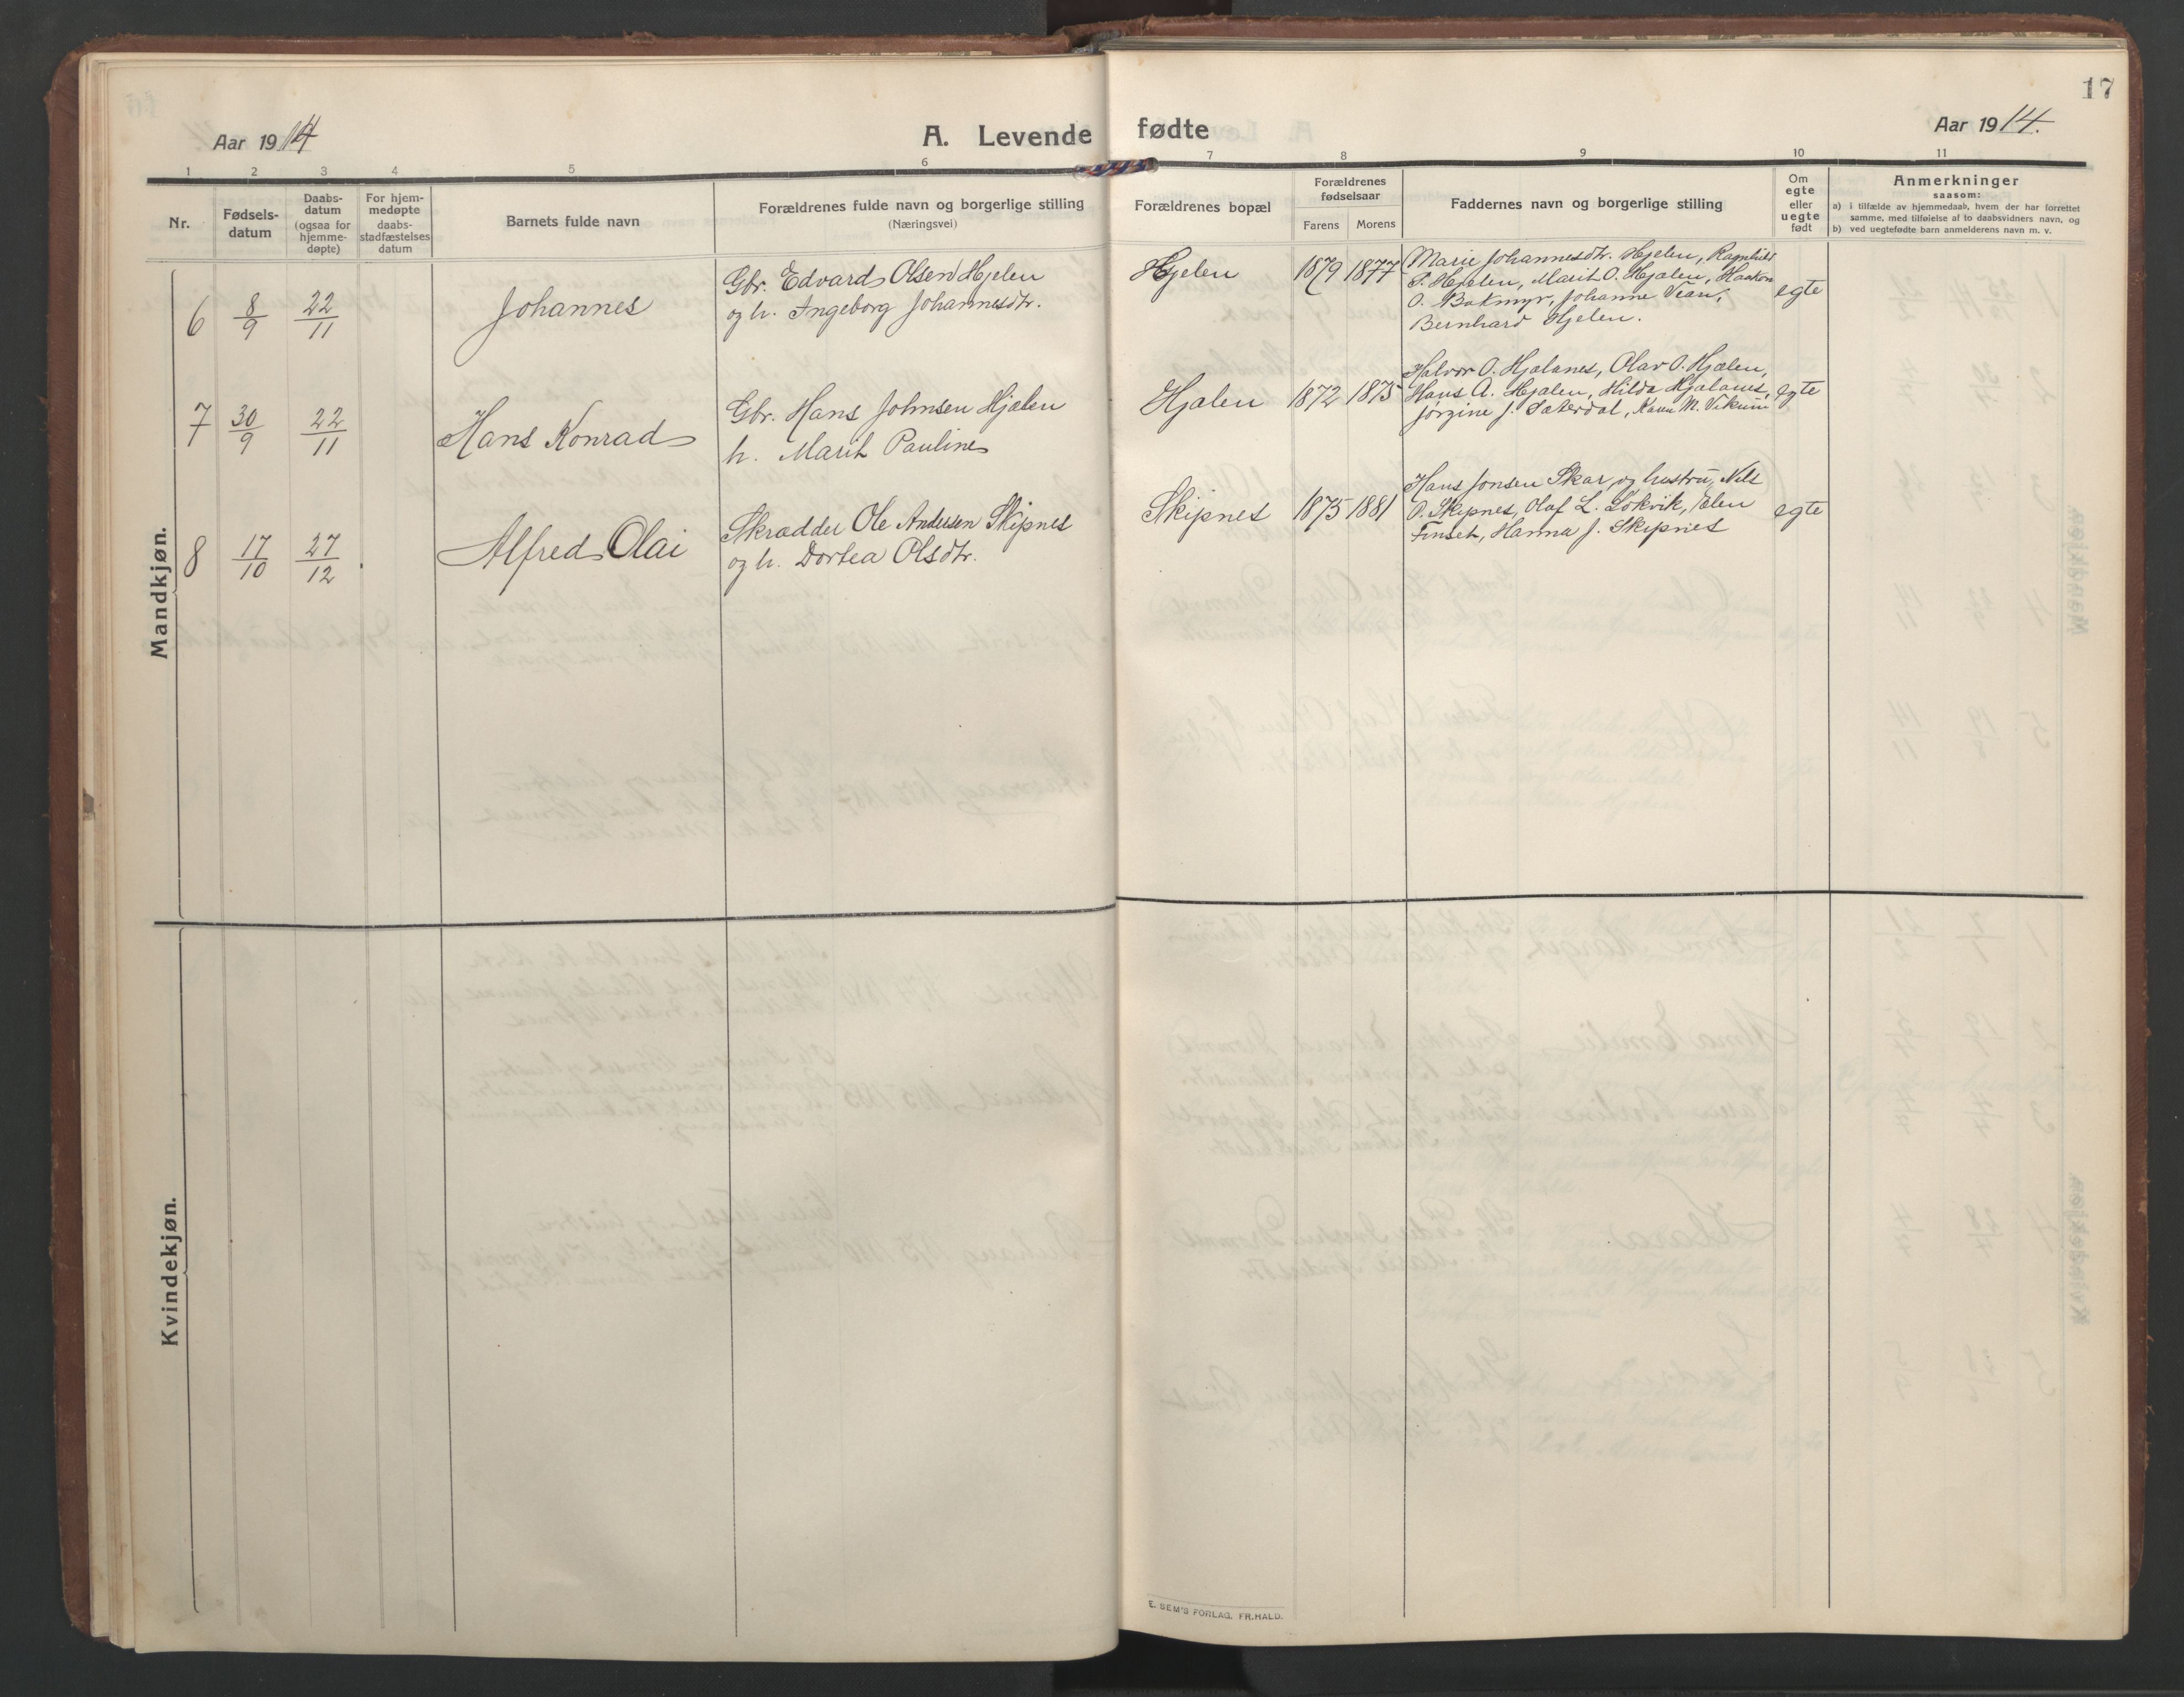 17
Aar 1914
A. Levende fødte
Aar 1914.
1 2 3 4 5 6 7 8 9 10 11
Nr.
Fødsels-
datum
Daabs-
datum
(ogsaa for
hjemme-
døpte)
For hjem-
medøpte
daabs-
stadfæstelses
datum
Barnets fulde navn
Forældrenes fulde navn og borgerlige stilling
(Næringsvei)
Forældrenes bopæl
Forældrenes
fødselsaar
Farens Morens
Faddernes navn og borgerlige stilling
Om
egte
eller
uegte
født
Anmerkninger
saasom:
a) i tilfælde av hjemmedaab, hvem der har forrettet
samme, med tilføielse af to daabsvidners navn, og
b) ved uegtefødte barn anmelderens navn m. v.
Mandkjøn.
6 8/9 22/11 Johannes
Gbr. Edvard Olsen Hjelen
og h. Ingeborg Johannesdtr.
Hjelen 1879 1877
Marie Johannesdtr. Hjelen, Ragnhild
P. Hjelen, Marit O. Hjalen, Haakon
O. Bakmyr, Johanne Vean,
Bernhard Hjelen.
egte
7 30/9 22/11 Hans Konrad
Gbr. Hans Johnsen Hjalen
h. Marit Pauline
Hjalen 1872 1875
Halvor O. Hjalanes, Olav O. Hjalen,
Hans A. Hjalen, Hilda Hjalanes,
Jørgine J. Sæterdal, Karen M. Vikum
egte
8 17/10 27/12 Alfred Olai
Skrædder Ole Andersen Skipnes
og h. Dortea Olsdtr.
Skipnes 1875 1881
Hans Jonsen Skar og hustru, Nils
O. Skipnes, Olaf L. Lökvik, Elen
Finset, Hanna J. Skipnes
egte
Kvindekjøn.
E. SEM'S FORLAG. FR.HALD.